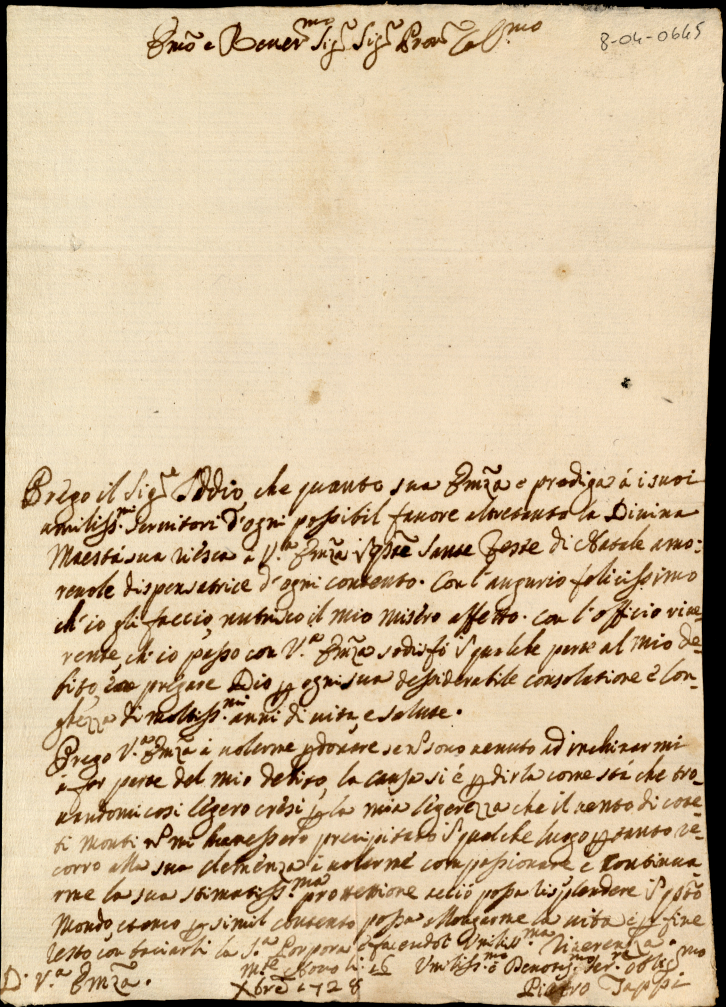 Em̃o e Rever.mo Sig.r Sig.r Pron̄ Col.mo
8-04-0645
Prego il Sig.e Iddio che quanto sua Emz̃a e prodiga á i suoi
umiliss.mi servitori d'ogni possibil favore altretanto la Divina
Maestá sua riesca a V.a Emz̃a sante feste di Natale amo:
revole dispensatrice d'ogni contento. Con l'augurio felicissimo
ch'io gli faccio nutrisco il mio misero affetto. Con l'officio rive=
rente ch'io passo con V.a Emz̃a sodisfo qualche parte al mio de=
bito pregare Dio ogni sua dessiderabile consolatione e lon=
ghezza di moltiss.mi anni di vita, e salute.
Prego V.a Emz̃a á volerne se sono venuto ad inchinarmi
a far parte del mio debito, la causa si é dirla come stá che tro=
vandomi cosi légero crési la mia légerezza che il vento di cote=
ti monti mi havessero precipitato qualche luogo tanto re=
corro alla sua cleménza á volermé compassionare é continua=
rme la sua stimatiss.ma prottettione acció possa risplendere
Mondo, simil contento possa la vita é fine
resto con baciarli la S.a Porpora é facendoli Umiliss.ma riverenza.
D. V.a Emz̃a. li 16 Umiliss.mo é Devotis.mo Ser.re oblig.mo
Xbre 1728 Pietro